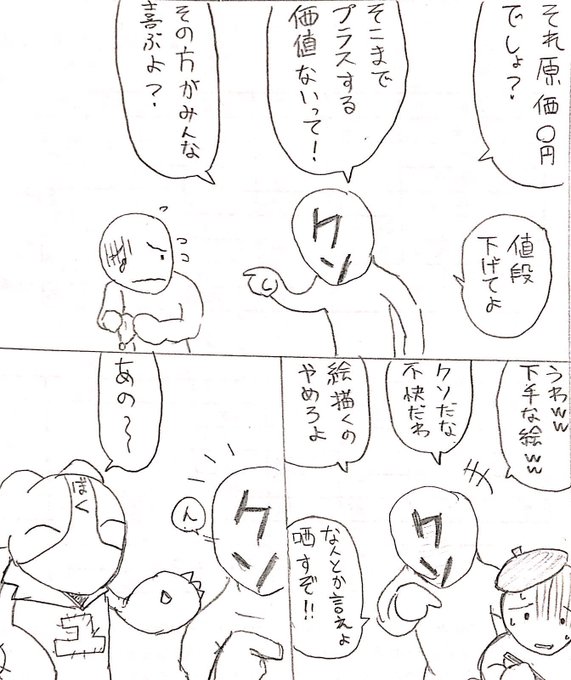 それ原価〇円
でしょ?
値段
下げてよ
そこまで
プラスする
価値ないって!
その方がみんな
喜ぶよ?
クソ
うわww
下手な絵ww
クソだな
不快だわ
絵描くの
やめろよ
クソ
なんとか言えよ
晒すぞ!!
あの〜
ん
クソ
ぼく